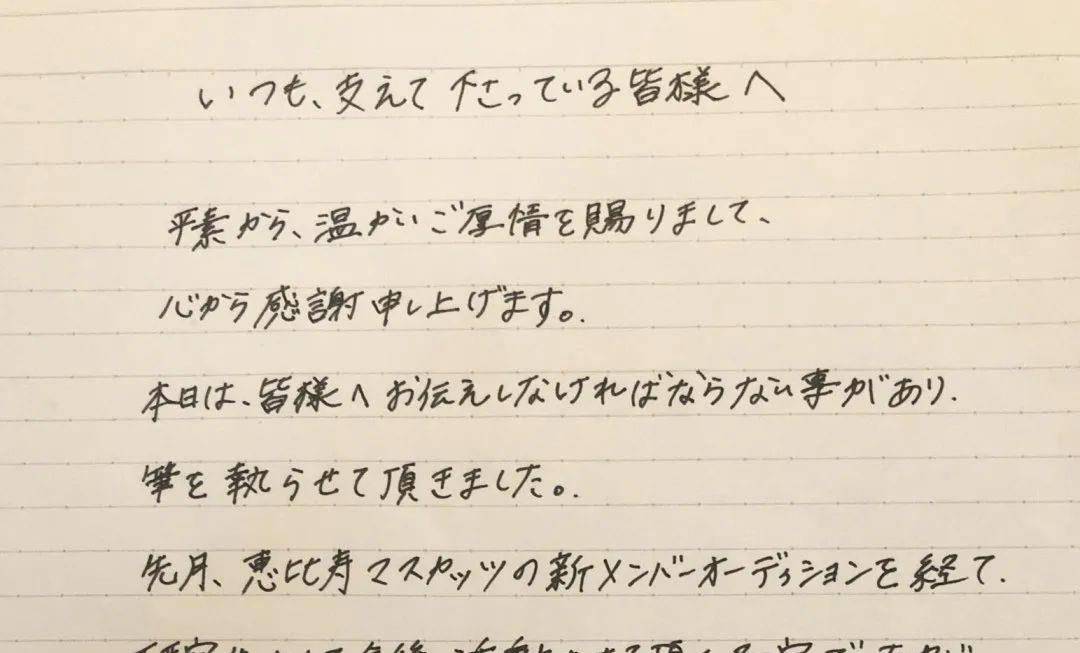 いつも、支えて下さっている皆様へ
平素から、温かいご厚情を賜りまして、
心から感謝申し上げます。
本日は、皆様へお伝えしなければならない事があり、
筆を執らせて頂きました。
先月、恵比寿マスカッツの新メンバーオーディションを経て、